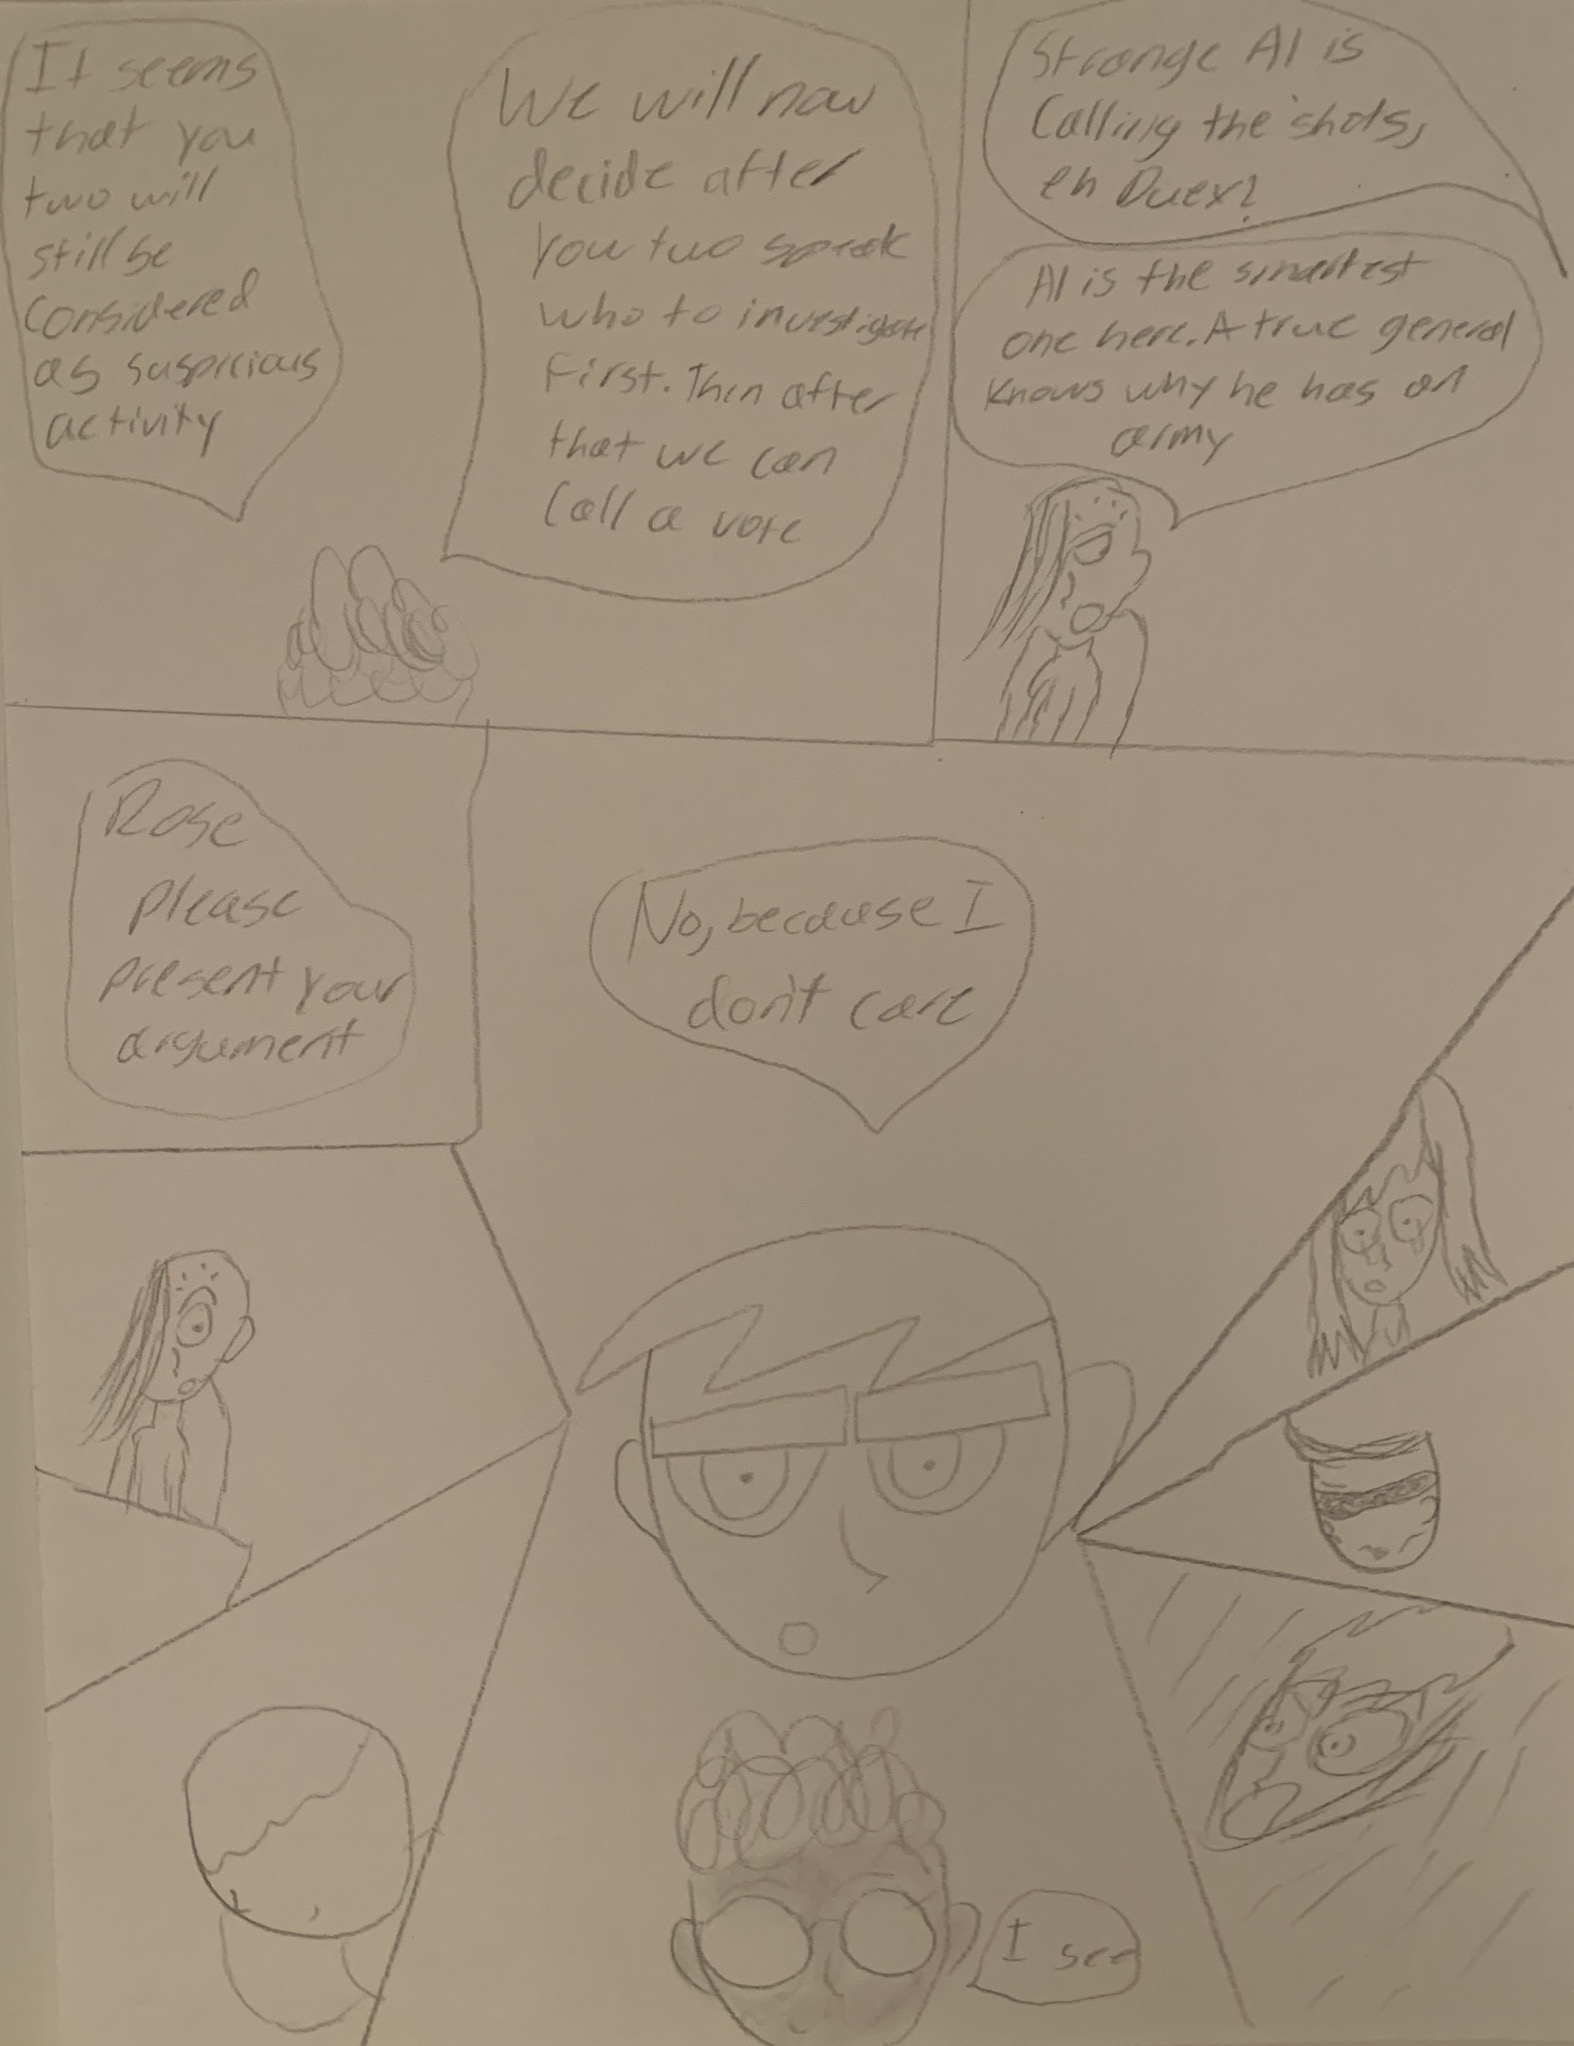 It seems
that you
two will
still be
considered
as suspicious
activity
We will now
decide after
you two speak
who to investigate
First. Then after
that we can
Call a vote
Strange Al is
Calling the shots,
eh Duex?
Al is the smartest
one here. A true general
knows why he has an
army
Rose
please
present your
argument
No, because I
don't care
I see